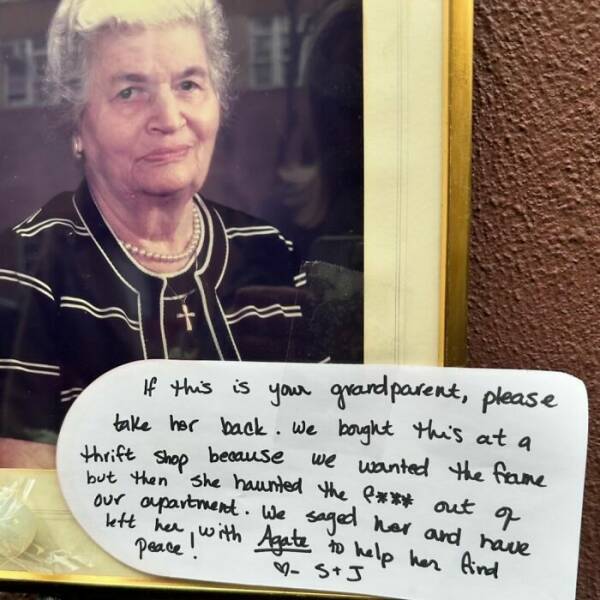 If this is your grandparent, please
take her back. We bought this at a
thrift shop because we wanted the frame
but then she haunted the f*** out of
our apartment. We saged her and have
left her, with Agate to help her find
peace!
♡- S+J